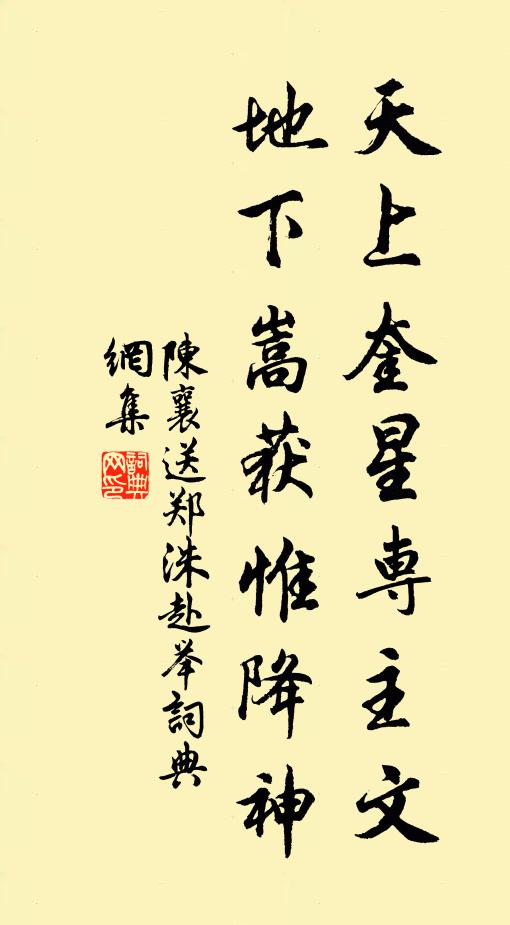 天上奎星専主文
地下嵩获惟降神
陳襄送郑洙赴举詞典
網集
詞典
网印